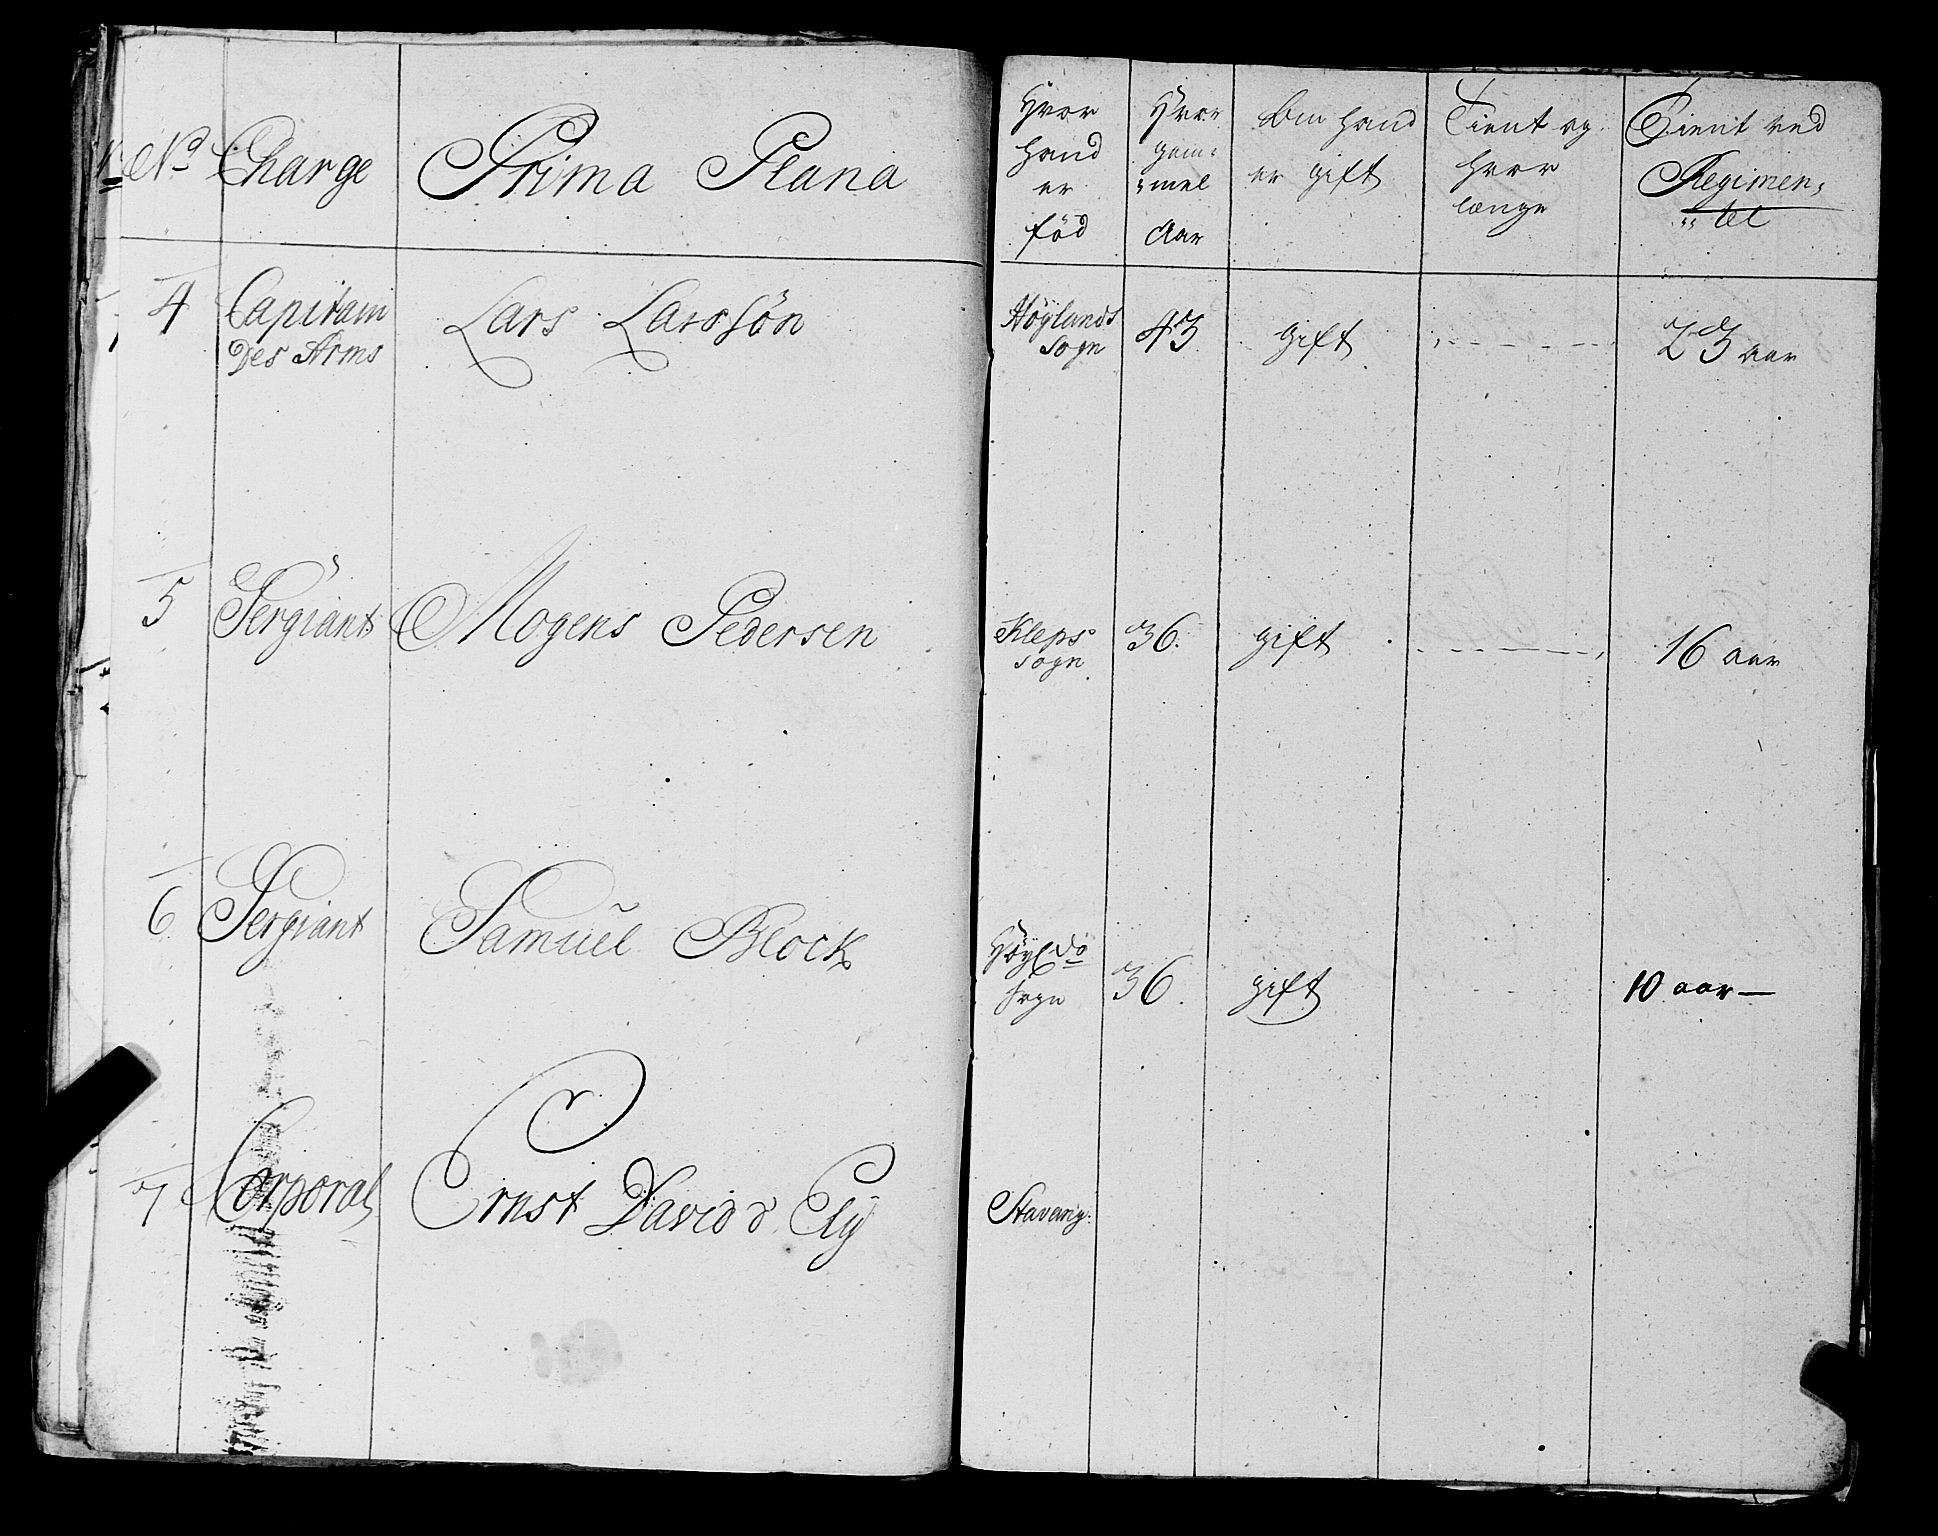 No Charge Prima Plana
Hvor
hand
er
fød
Hvor
gam:
:mel
Aar
Om hand
er gift
Tient og
hvor
længe
Tient ved
Regimen:
:: tet
4 Capitain
Des Arms
Lars Larssøn
Høylands
Sogn
43
gift
23 aar
5 Sergiant Mogens Pedersen
Kleps
sogn
36.
gift
16 aar
6 Sergiant Samuel Block
Høyl do
Sogn
36.
gift
10 aar —
7 Corporal Ernst David d Ely
Stavang: